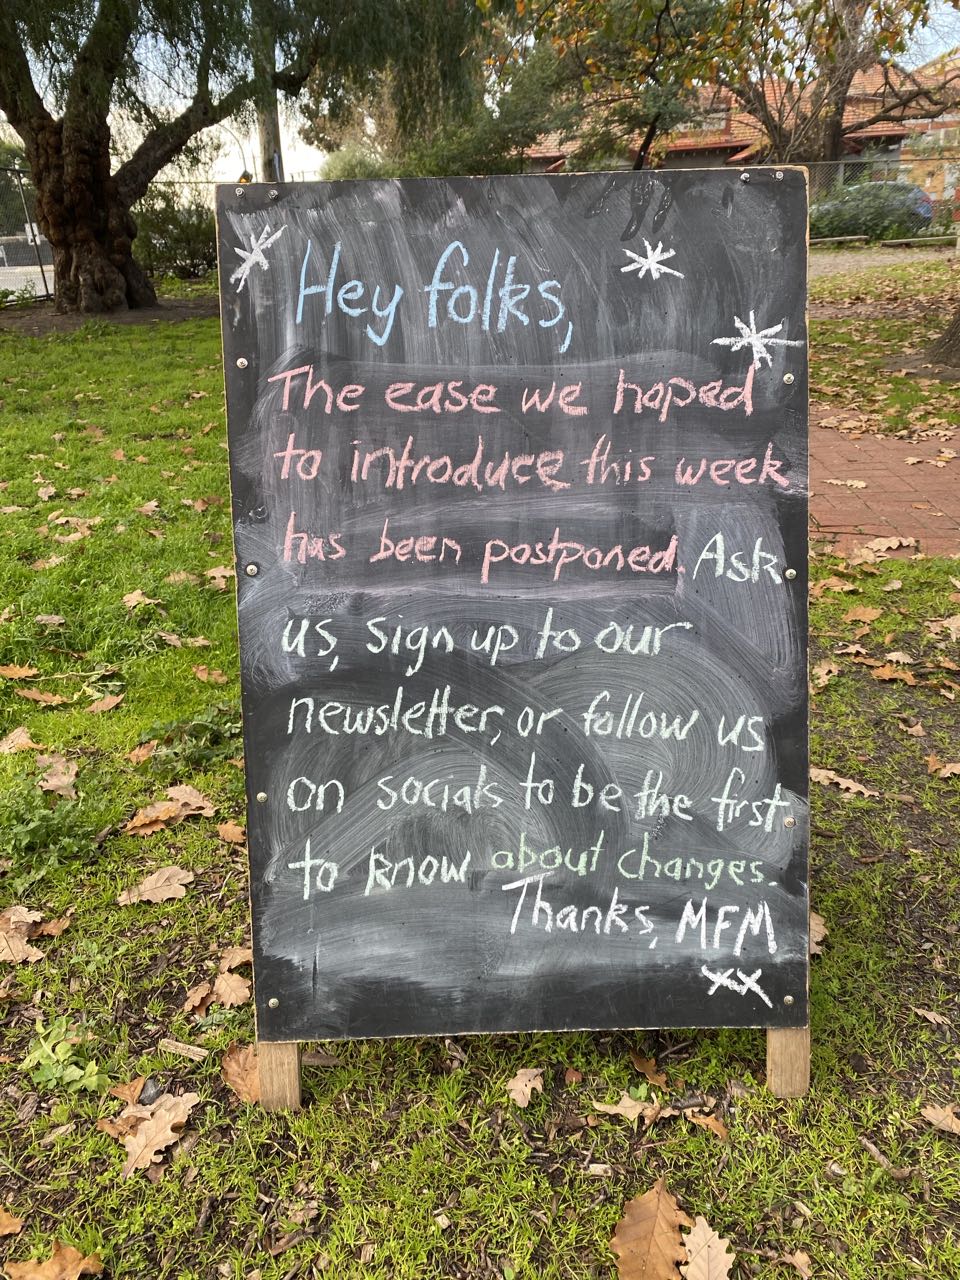 Hey folks,
The ease we hoped
to introduce this week
has been postponed. Ask
us, sign up to our
newsletter, or follow us
on socials to be the first
to know about changes.
Thanks, MFM
xx